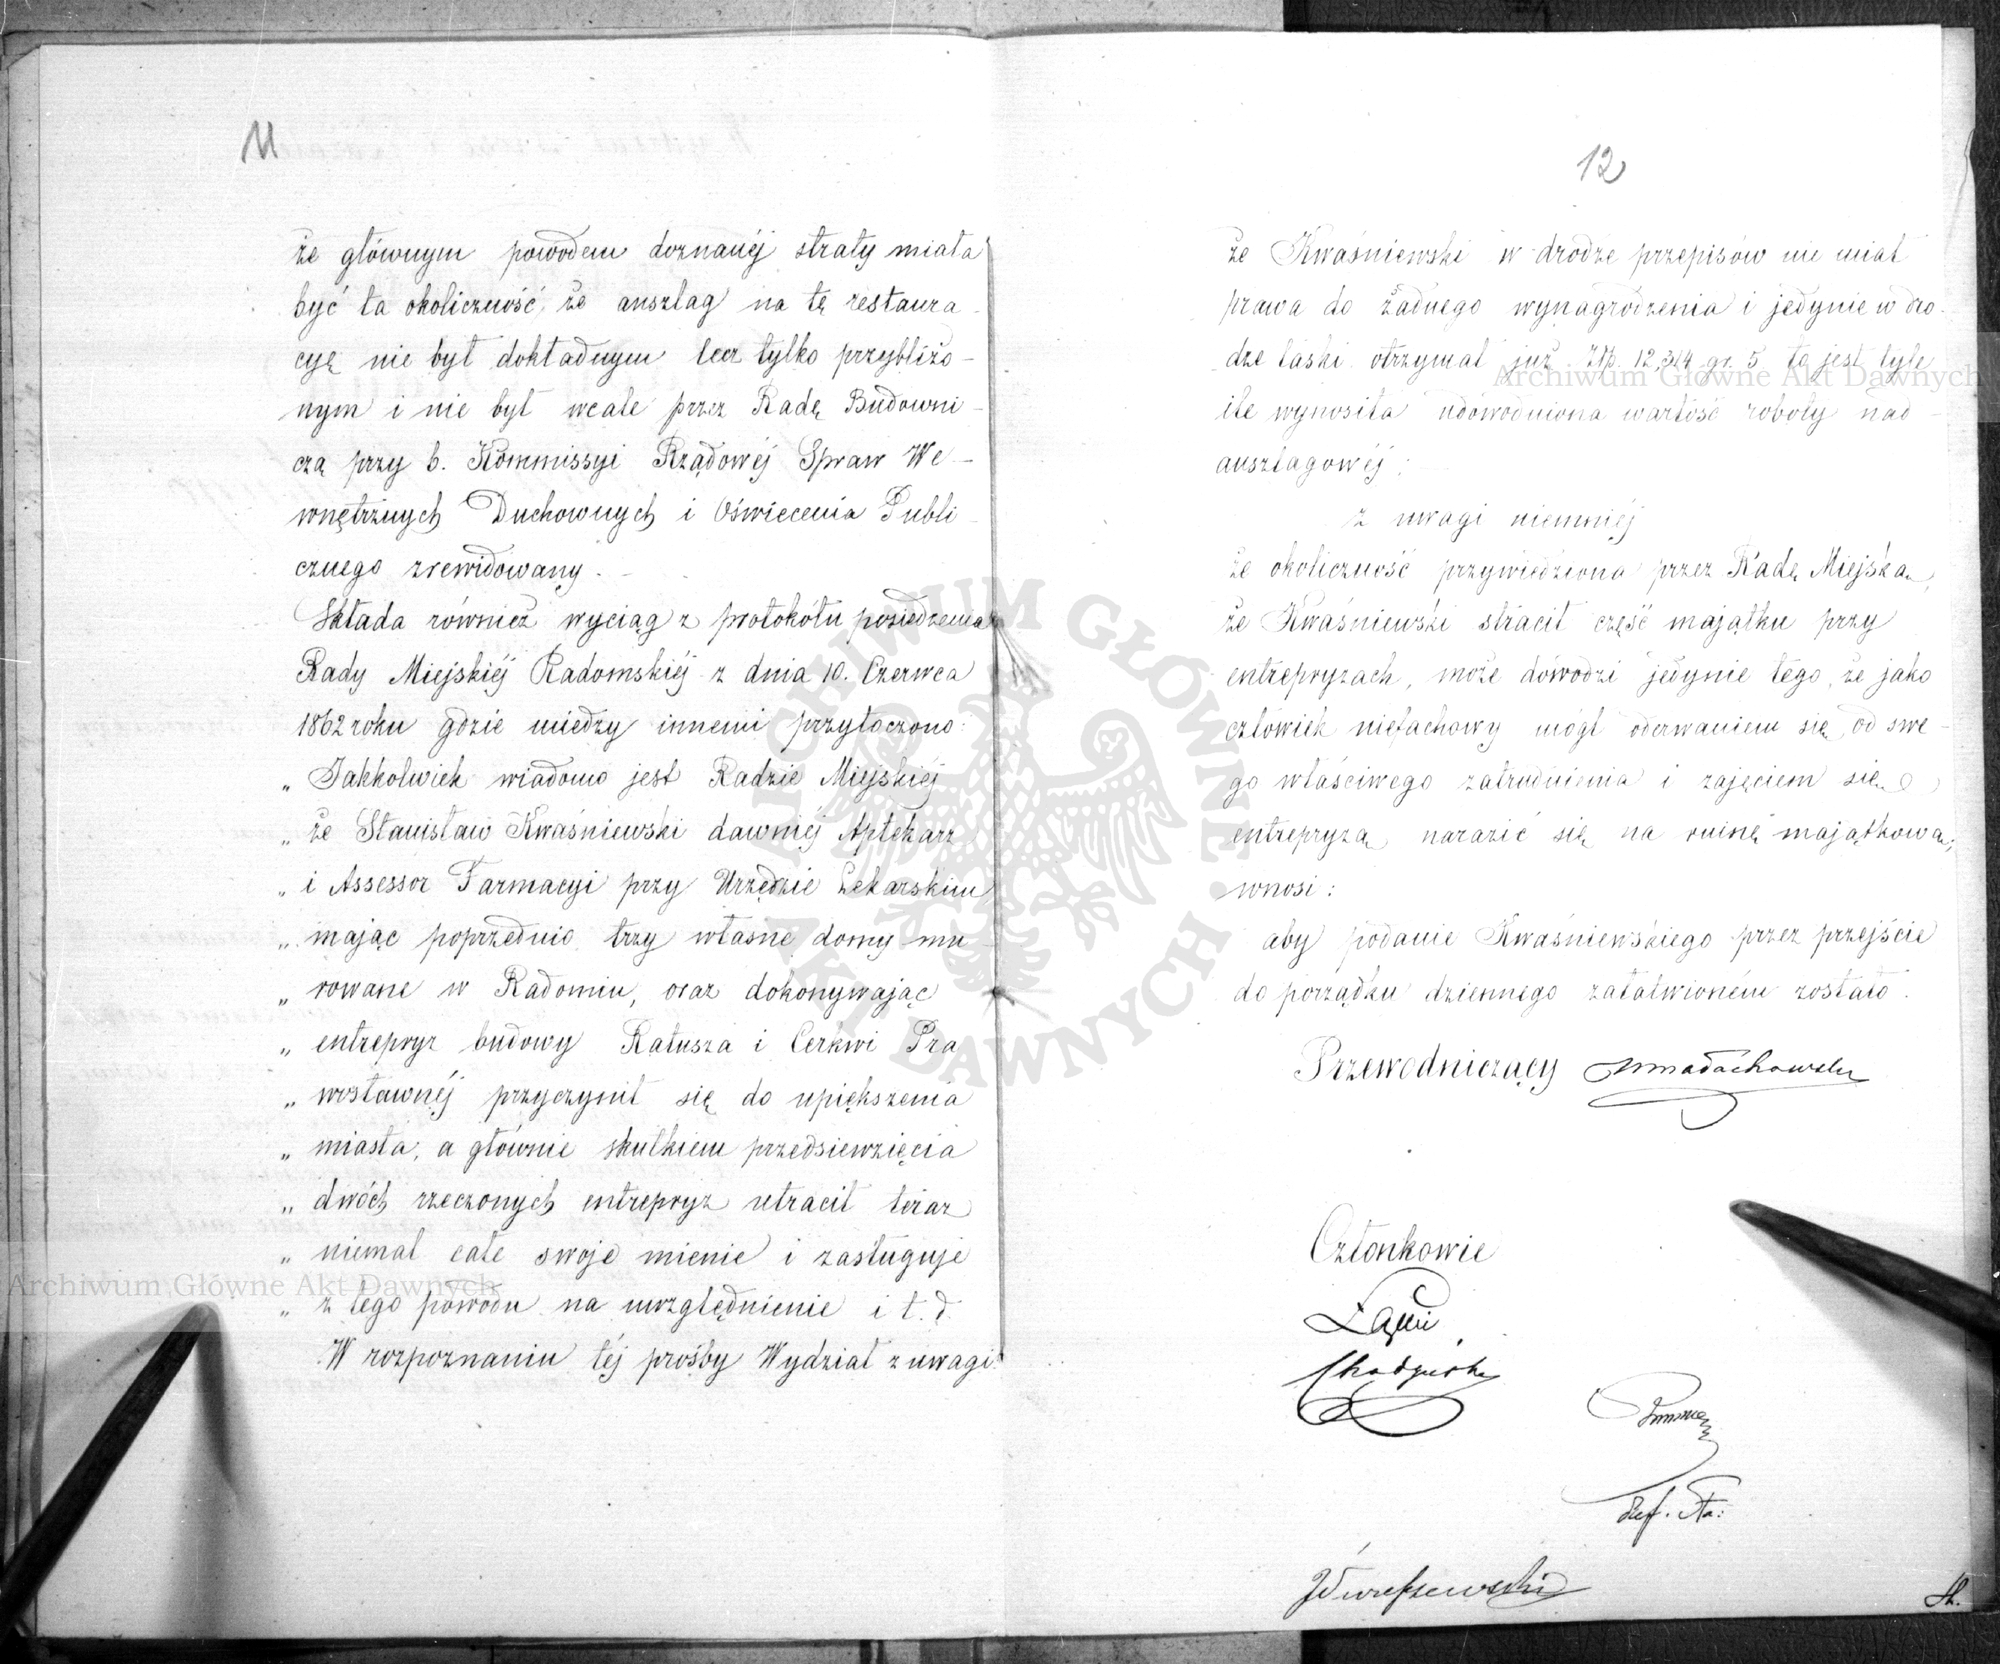 11
że głównym powodem doznanéj straty miała
być ta okoliczność, że anszlag na tę restaura-
cyę nie był dokładnym lecz tylko przybliżo-
nym i nie był wcale przez Radę Budowni-
czą przy b. Kommissyi Rządowéj Spraw We-
wnętrznych Duchownych i Oświecenia Publi-
cznego zrewidowany.
Składa również wyciąg z protokółu posiedzenia
Rady Miejskiéj Radomskiéj z dnia 10. Czerwca
1862 roku gdzie między innemi przytoczono:
„ Jakkolwiek wiadomo jest Radzie Miejskiéj
„ że Stanisław Kwaśniewski dawniéj Aptekarz
„ i Assessor Farmacyi przy Urzędzie Lekarskim
„ mając poprzednio trzy własne domy mu-
„ rowane w Radomiu, oraz dokonywając
„ entrepryz budowy Ratusza i Cerkwi Pra
„ wosławnéj przyczynił się do upiększenia
„ miasta, a głównie skutkiem przedsiewzięcia
„ dwóch rzeczonych entrepryz utracił teraz
„ niemal całe swoje mienie i zasługuje
„ z tego powodu na uwzględnienie i t. d.
W rozpoznaniu téj prośby Wydział z uwagi:
12
że Kwaśniewski w drodze przepisów nie miał
prawa do żadnego wynagrodzenia i jedynie w dro-
dze łaski otrzymał już Złp. 12,314 gr. 5 to jest tyle
ile wynosiła udowodniona wartość roboty nad-
anszlagowéj:
z uwagi niemniéj
że okoliczność przywiedziona przez Radę Miejską,
że Kwaśniewski stracił część majątku przy
entrepryzach, może dowodzi jedynie tego, że jako
człowiek niefachowy mógł oderwaniem się od swe-
go właściwego zatrudnienia i zajęciem się
entrepryzą narazić się na ruinę majątkową;
wnosi:
aby podanie Kwaśniewskiego przez przejście
do porządku dziennego załatwioném zostało.
Przewodniczący Małachowski
Członkowie
Łącki
Ref. Sta:
Archiwum Główne Akt Dawnych
Archiwum Główne Akt Dawnych
ARCHIWUM GŁÓWNE AKT DAWNYCH